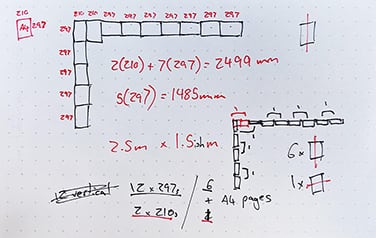 210
A4 297
210 210 297 297 297 297 297 297 297
297
297
297
297
297
2(210) + 7(297) = 2499 mm
5(297) = 1485mm
2.5m x 1.5ish m
6x
1x
12 vertical
12 x 297s / 6
2 x 210s / 1
+ A4 pages